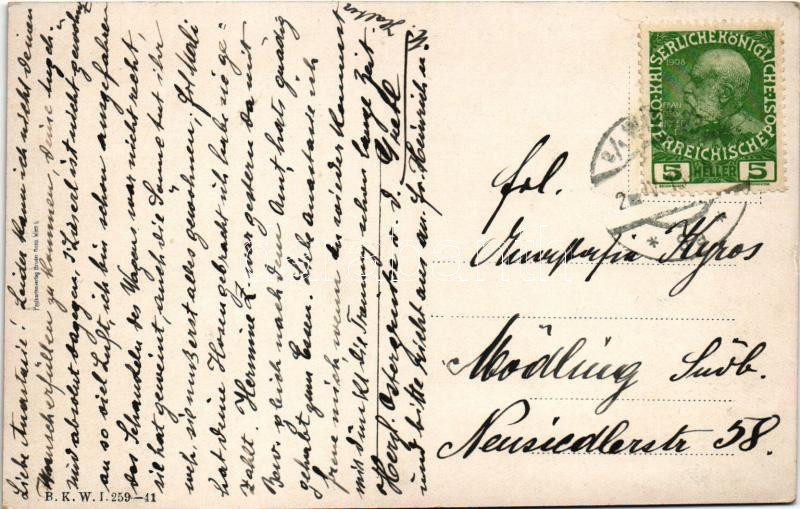 Liebe Anastasie! Leider kann ich nicht deinen
Wunsch erfüllen zu kommen, deine
sind absolut dagegen, 's Liserl ist nicht gewohnt
an so viel Luft, ich bin schon angefahren
das Schaukeln des Wagens war nicht recht,
sie hat gemeint, auch die Sonne tut ihr
weh, sie muß erst alles gewohnen, Frl Mali
hat deine Honig gebracht ich hab sie ge=
zahlt. Hermine Z war gestern da mit
gleich nach dem Amt, hats gnädig
gehabt zum Essen. Liebe Anastasie ich
freue mich, wenn du wieder kommst
mir dünkt die Trennung schon lange Zeit.
Herzl. Ostergrüße v. d. Gretl
und bitte richt aus an Fr. Heinrich u.
Postkartenverlag Brüder Kohn, Wien I.
B. K. W. I. 259—41
KAISERLICHEKÖNIGLICHE
ÖSTERREICHISCHEPOST
1908
5 HELLER 5
Frl.
Anastasia Kyros
Mödling Südb.
Neusiedlerstr 58.